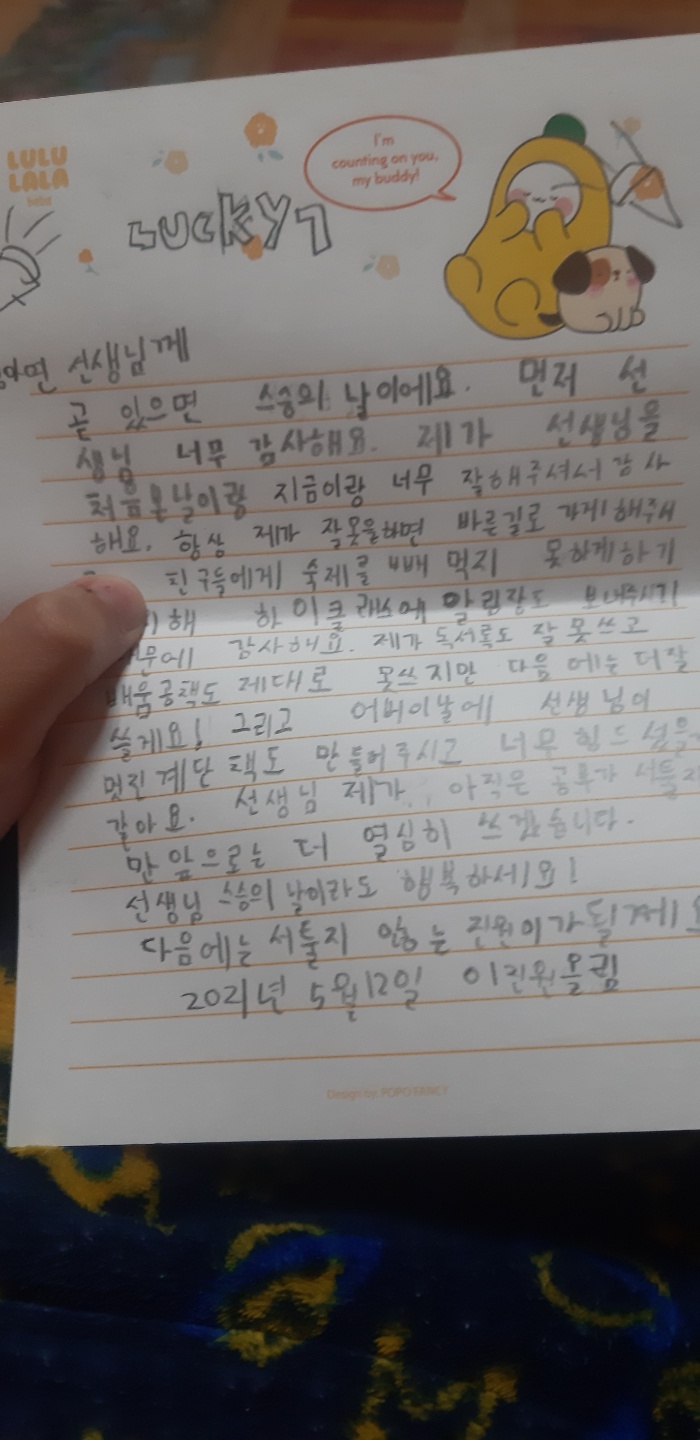 LULU
LALA
bebe
LUCKY 7
I'm
counting on you,
my buddy!
선생님께
곧 있으면 스승의 날이에요. 먼저 선
생님 너무 감사해요. 제가 선생님을
처음본날이랑 지금이랑 너무 잘해주셔서 감사
해요. 항상 제가 잘못을하면 바른길로 가게해주셔
친구들에게 숙제를 빼먹지 못하게하기
해 하이클래스에 알림장도 보내주시기
감사해요. 제가 독서록도 잘못쓰고
배움공책도 제대로 못쓰지만 다음에는 더잘
쓸게요! 그리고 어버이날에 선생님이
멋진 계단책도 만들어주시고 너무 힘드셨을
같아요. 선생님 제가 아직은 공부가 서툴지
만 앞으로는 더 열심히 쓰겠습니다.
선생님 스승의 날이라도 행복하세요!
다음에는 서툴지 않는 진원이가될게요
2021년 5월12일 이진원올림
Design by. POPO FANCY